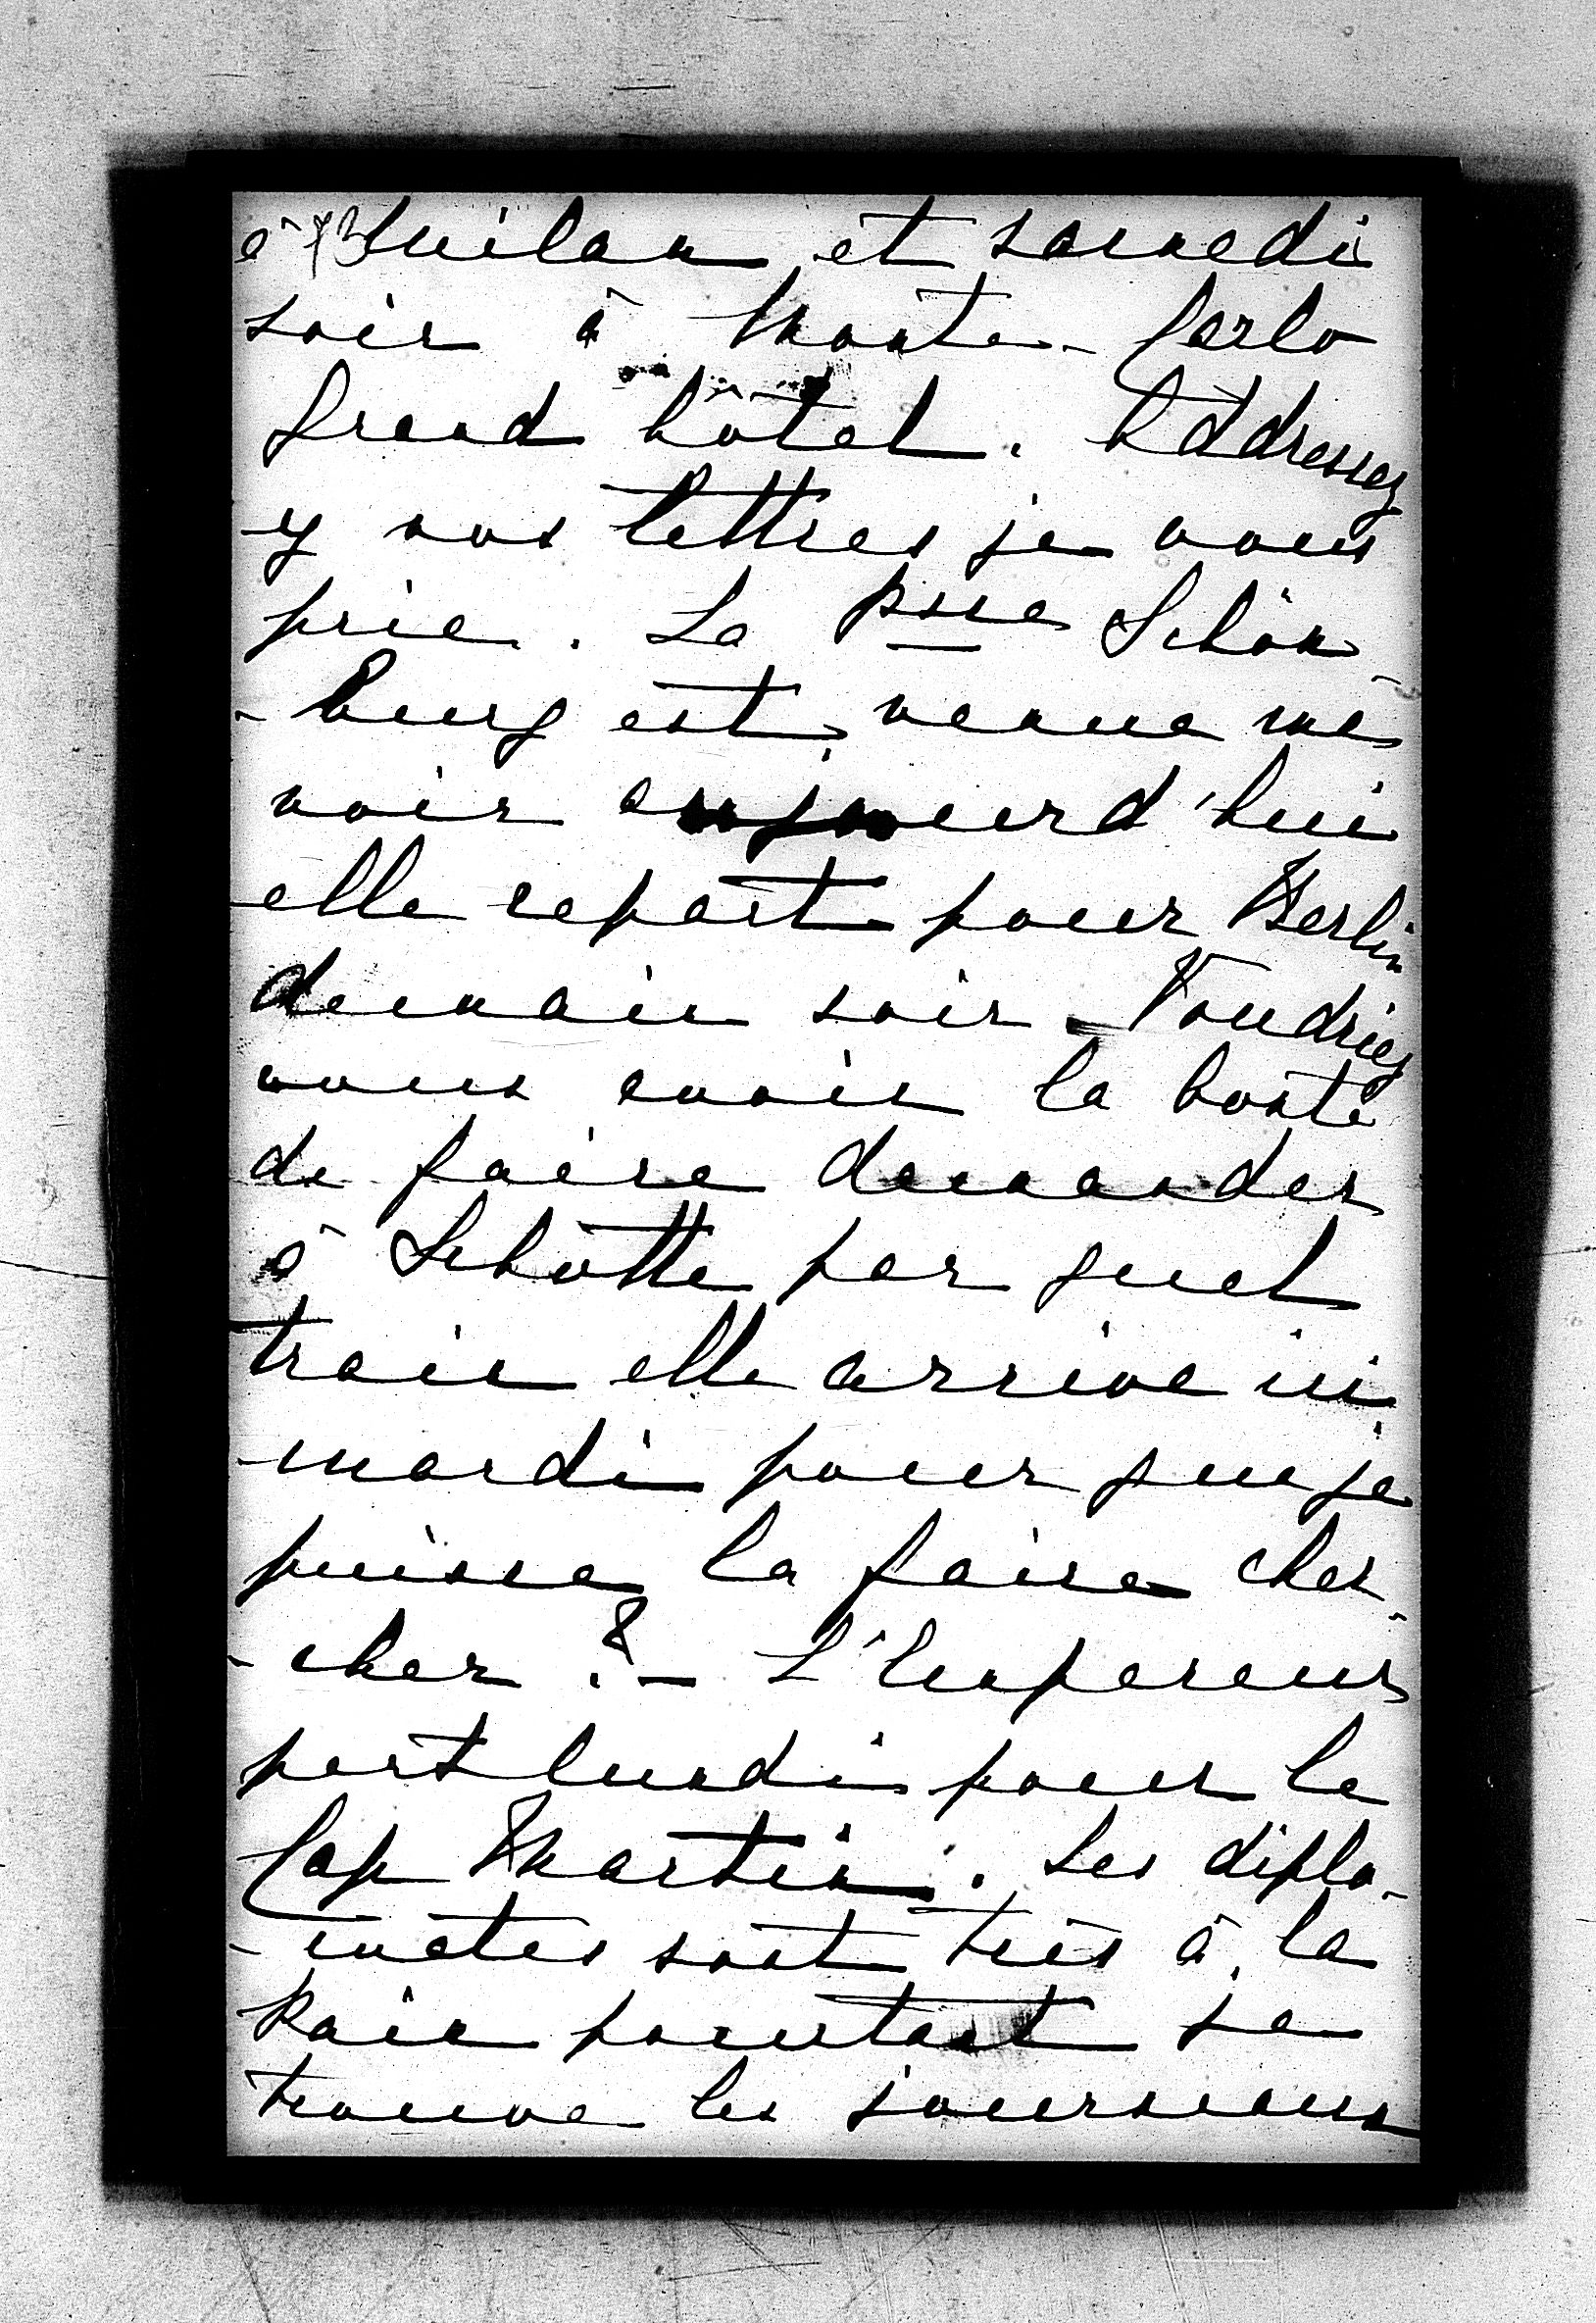 à Milan et samedi
soir à Monte-Carlo
Grand hôtel. Addressez
y vos lettres je vous
prie. La psse Schön-
-burg est venue me
voir aujourd'hui
elle repart pour Berlin
demain soir - Voudriez
vous avoir la bonté
de faire demander
à Schötte par quel
train elle arrive ici
mardi pour que je
puisse la faire cher-
-cher ? - L'Empereur
part lundi pour le
Cap Martin. Les diplo-
-mates sont très à la
paix pourtant je
trouve les journaux